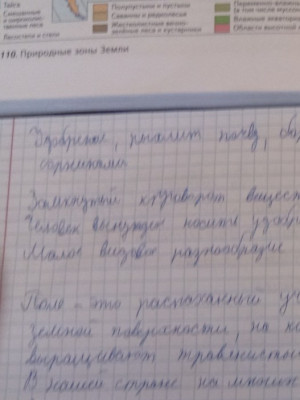 Тайга
Смешанные
Лесостепи и степи
Полупустыни и пустыни
Саванны и редколесья
Жестколистные вечно-
зелёные леса и кустарники
Переменно-влажн
Влажные экваториа
Области высотной
110. Природные зоны Земли
Удобрение, рыхлит почву, бо
сорняками
Замкнутый круговорот вещест
Человек вынужден носить удобр
Малое видовое разнообразие
Поле - это распаханный уч
земной поверхности, на ко
выращивают травянистой
В нашей стране на многих